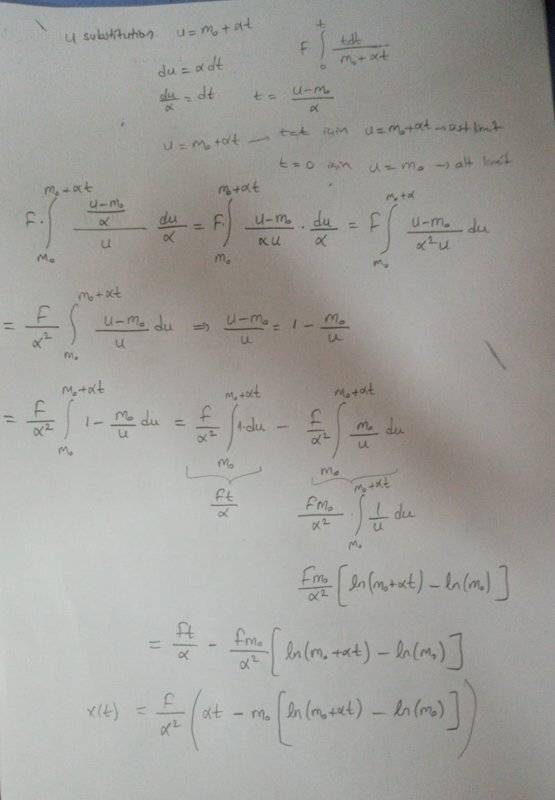 u substitution u = m₀ + αt F ∫₀ᵗ tdt / (m₀ + αt)
du = α dt
du/α = dt t = (u − m₀)/α
u = m₀ + αt → t = t için u = m₀ + αt → üst limit
t = 0 için u = m₀ → alt limit
F · ∫_{m₀}^{m₀+αt} ((u − m₀)/α)/u du/α = F ∫_{m₀}^{m₀+αt} (u − m₀)/(αu) · du/α = F ∫_{m₀}^{m₀+α} (u − m₀)/(α²u) du
= F/α² ∫_{m₀}^{m₀+αt} (u − m₀)/u du ⇒ (u − m₀)/u = 1 − m₀/u
= F/α² ∫_{m₀}^{m₀+αt} 1 − m₀/u du = F/α² ∫_{m₀}^{m₀+αt} 1·du − F/α² ∫_{m₀}^{m₀+αt} m₀/u du
Ft/α Fm₀/α² · ∫_{m₀}^{m₀+αt} 1/u du
Fm₀/α² [ln(m₀+αt) − ln(m₀)]
= Ft/α − Fm₀/α² [ln(m₀+αt) − ln(m₀)]
x(t) = F/α² (αt − m₀ [ln(m₀+αt) − ln(m₀)])